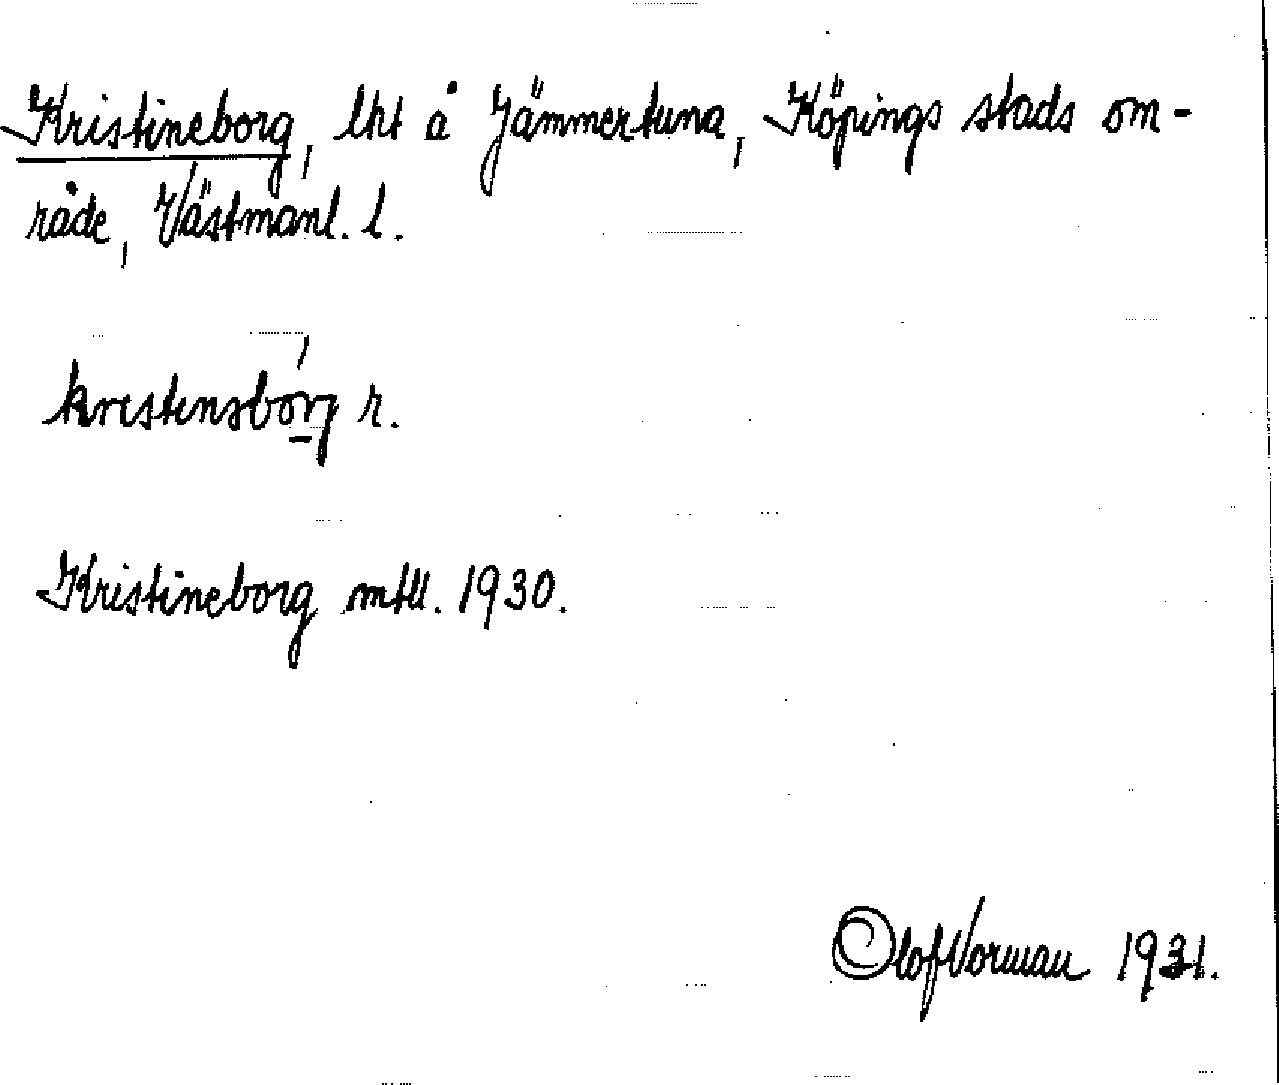 Kristineborg, lht å Jämmertuna, Köpings stads om-
råde, Västmanl. l.
krestensbórg r.
Kristineborg mtll. 1930.
Olof Vorman 1931.